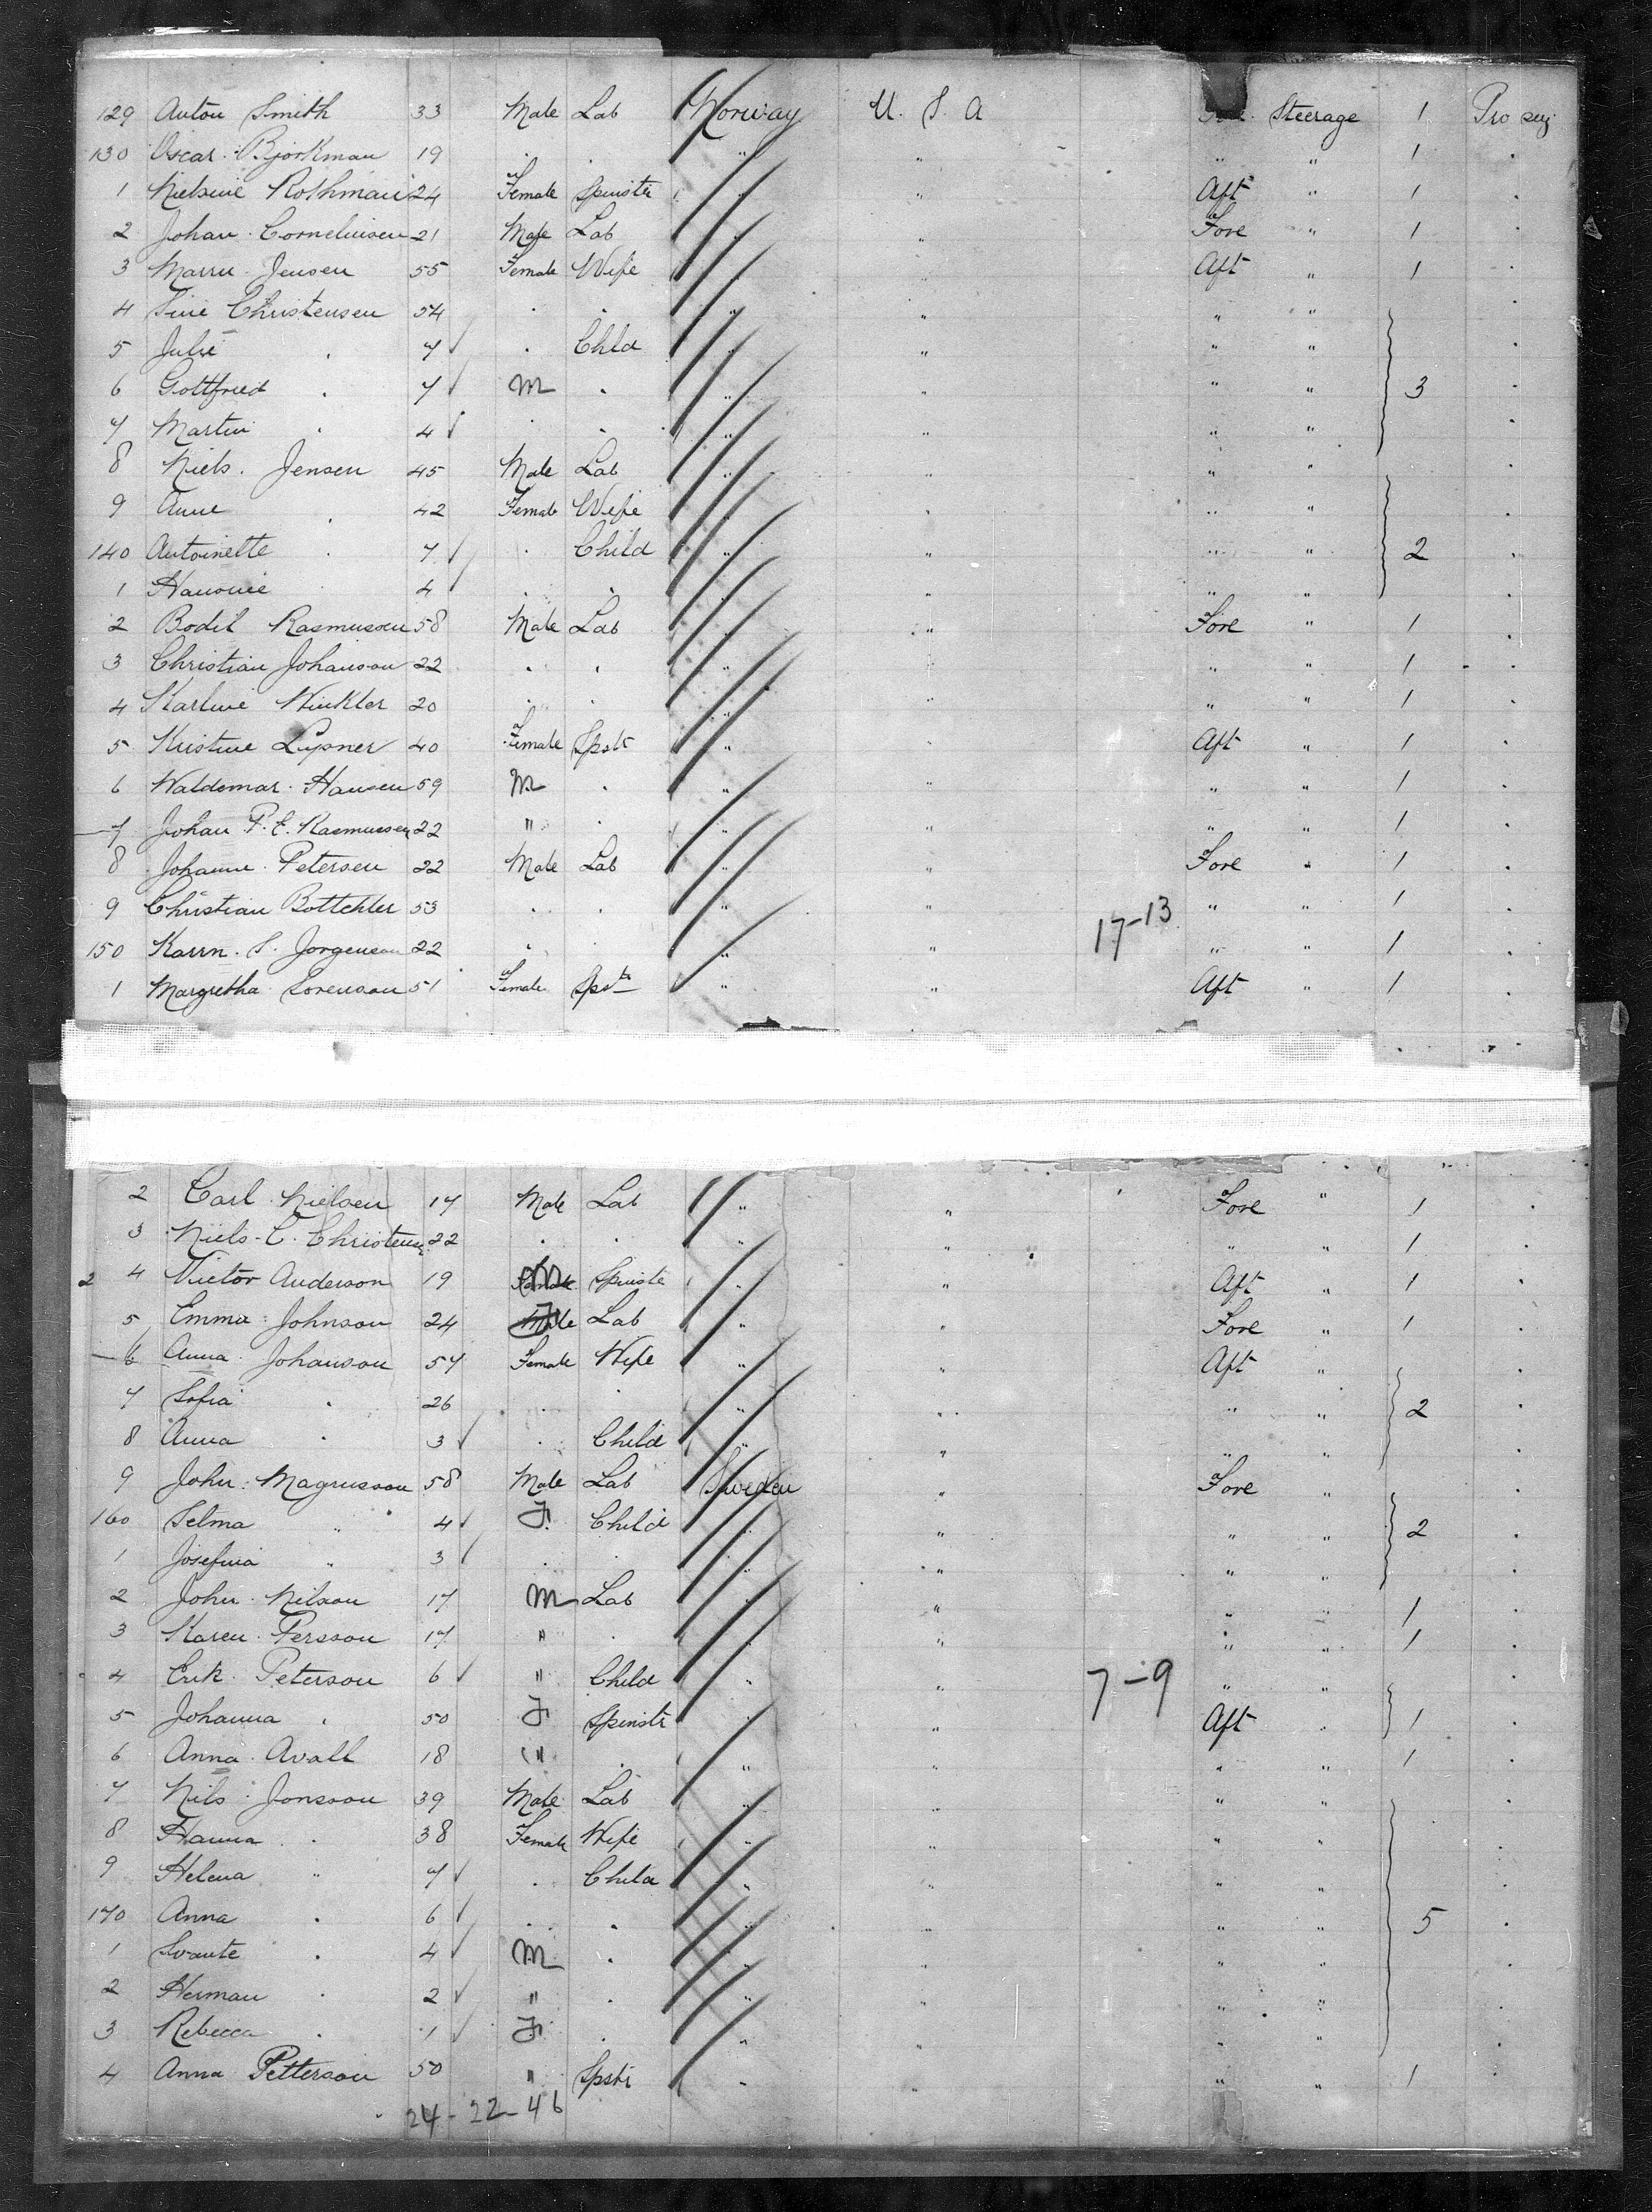 129 Anton Smith 33 Male Lab Norway U. S. A Steerage 1 Pro seg
130 Oscar Bjorkman 19 . . " " " " 1 .
1 Nielsine Rothman 24 Female Spinstr " " Aft " 1 .
2 Johan Corneliusen 21 Male Lab " " Fore " 1 .
3 Marru Jensen 55 Female Wife " " Aft " 1 .
4 Sine Christensen 54 . . " " " " .
5 Julie . 7 ✓ . Chld " " " " .
6 Gottfried . 7 ✓ M . " " " " 3 .
7 Martin . 4 ✓ . . " " " " .
8 Niels. Jensen 45 Male Lab " " " " .
9 Anne . 42 Female Wife " " " " .
140 Antoinette . 7 ✓ . Child " " " " 2 .
1 4 ✓ . . " " " " .
2 Bodil Rasmussen 58 Male Lab " " Fore " 1 .
3 Christian Johanson 22 . . " " " " 1 .
4 Karline Winkler 20 . . " " " " 1 .
5 Kristine Lypner 40 Female Spstr " " Aft " 1 .
6 Waldemar Hansen 59 M . " " " " 1 .
7 Johan P. E. Rasmussen 22 " . " " " " 1 .
8 Johanne Petersen 22 Male Lab " " Fore " 1 .
9 Christian Bottchler 53 . . " " 17-13 " " 1 .
150 Karrn. S. Jorgensen 22 . . " " " " 1 .
1 Margretha Sorenson 51 Female Spstr " " Aft " 1 .
2 Carl Nielsen 17 Male Lab " " Fore " 1 .
3 Niels C. Christense 22 . . " " " " 1 .
2 4 Victor Anderson 19 M Spinste " " Aft " 1 .
5 Emma Johnson 24 F Lab " " Fore " 1 .
6 Anna Johanson 57 Female Wife " " Aft " .
7 Sofia . 26 . . " " " " 2 .
8 Anna . 3 ✓ . Child " " " " .
9 John Magnusson 58 Male Lab Sweden " Fore " .
160 Selma " 4 ✓ F. Child " " " " 2 .
1 Josefina " 3 ✓ . . " " " " .
2 John Nilson 17 M Lab " " " " 1 .
3 Karen Persson 17 " . " " " " 1 .
4 Erik Peterson 6 ✓ " Child " " 7-9 " " .
5 Johanna . 50 F Spinstr " " Aft " 1 .
6 Anna Avall 18 " . " " " " 1 .
7 Nils Jonsson 39 Male Lab " " " " .
8 Hanna . 38 Female Wife " " " " .
9 Helena " 7 ✓ . Child " " " " .
170 Anna . 6 ✓ . . " " " " 5 .
1 Svante . 4 ✓ M . " " " " .
2 Herman . 2 ✓ " . " " " " .
3 Rebecca . 1 ✓ F . " " " " .
4 Anna Petterson 50 " Spstr " " " " 1 .
24-22-46